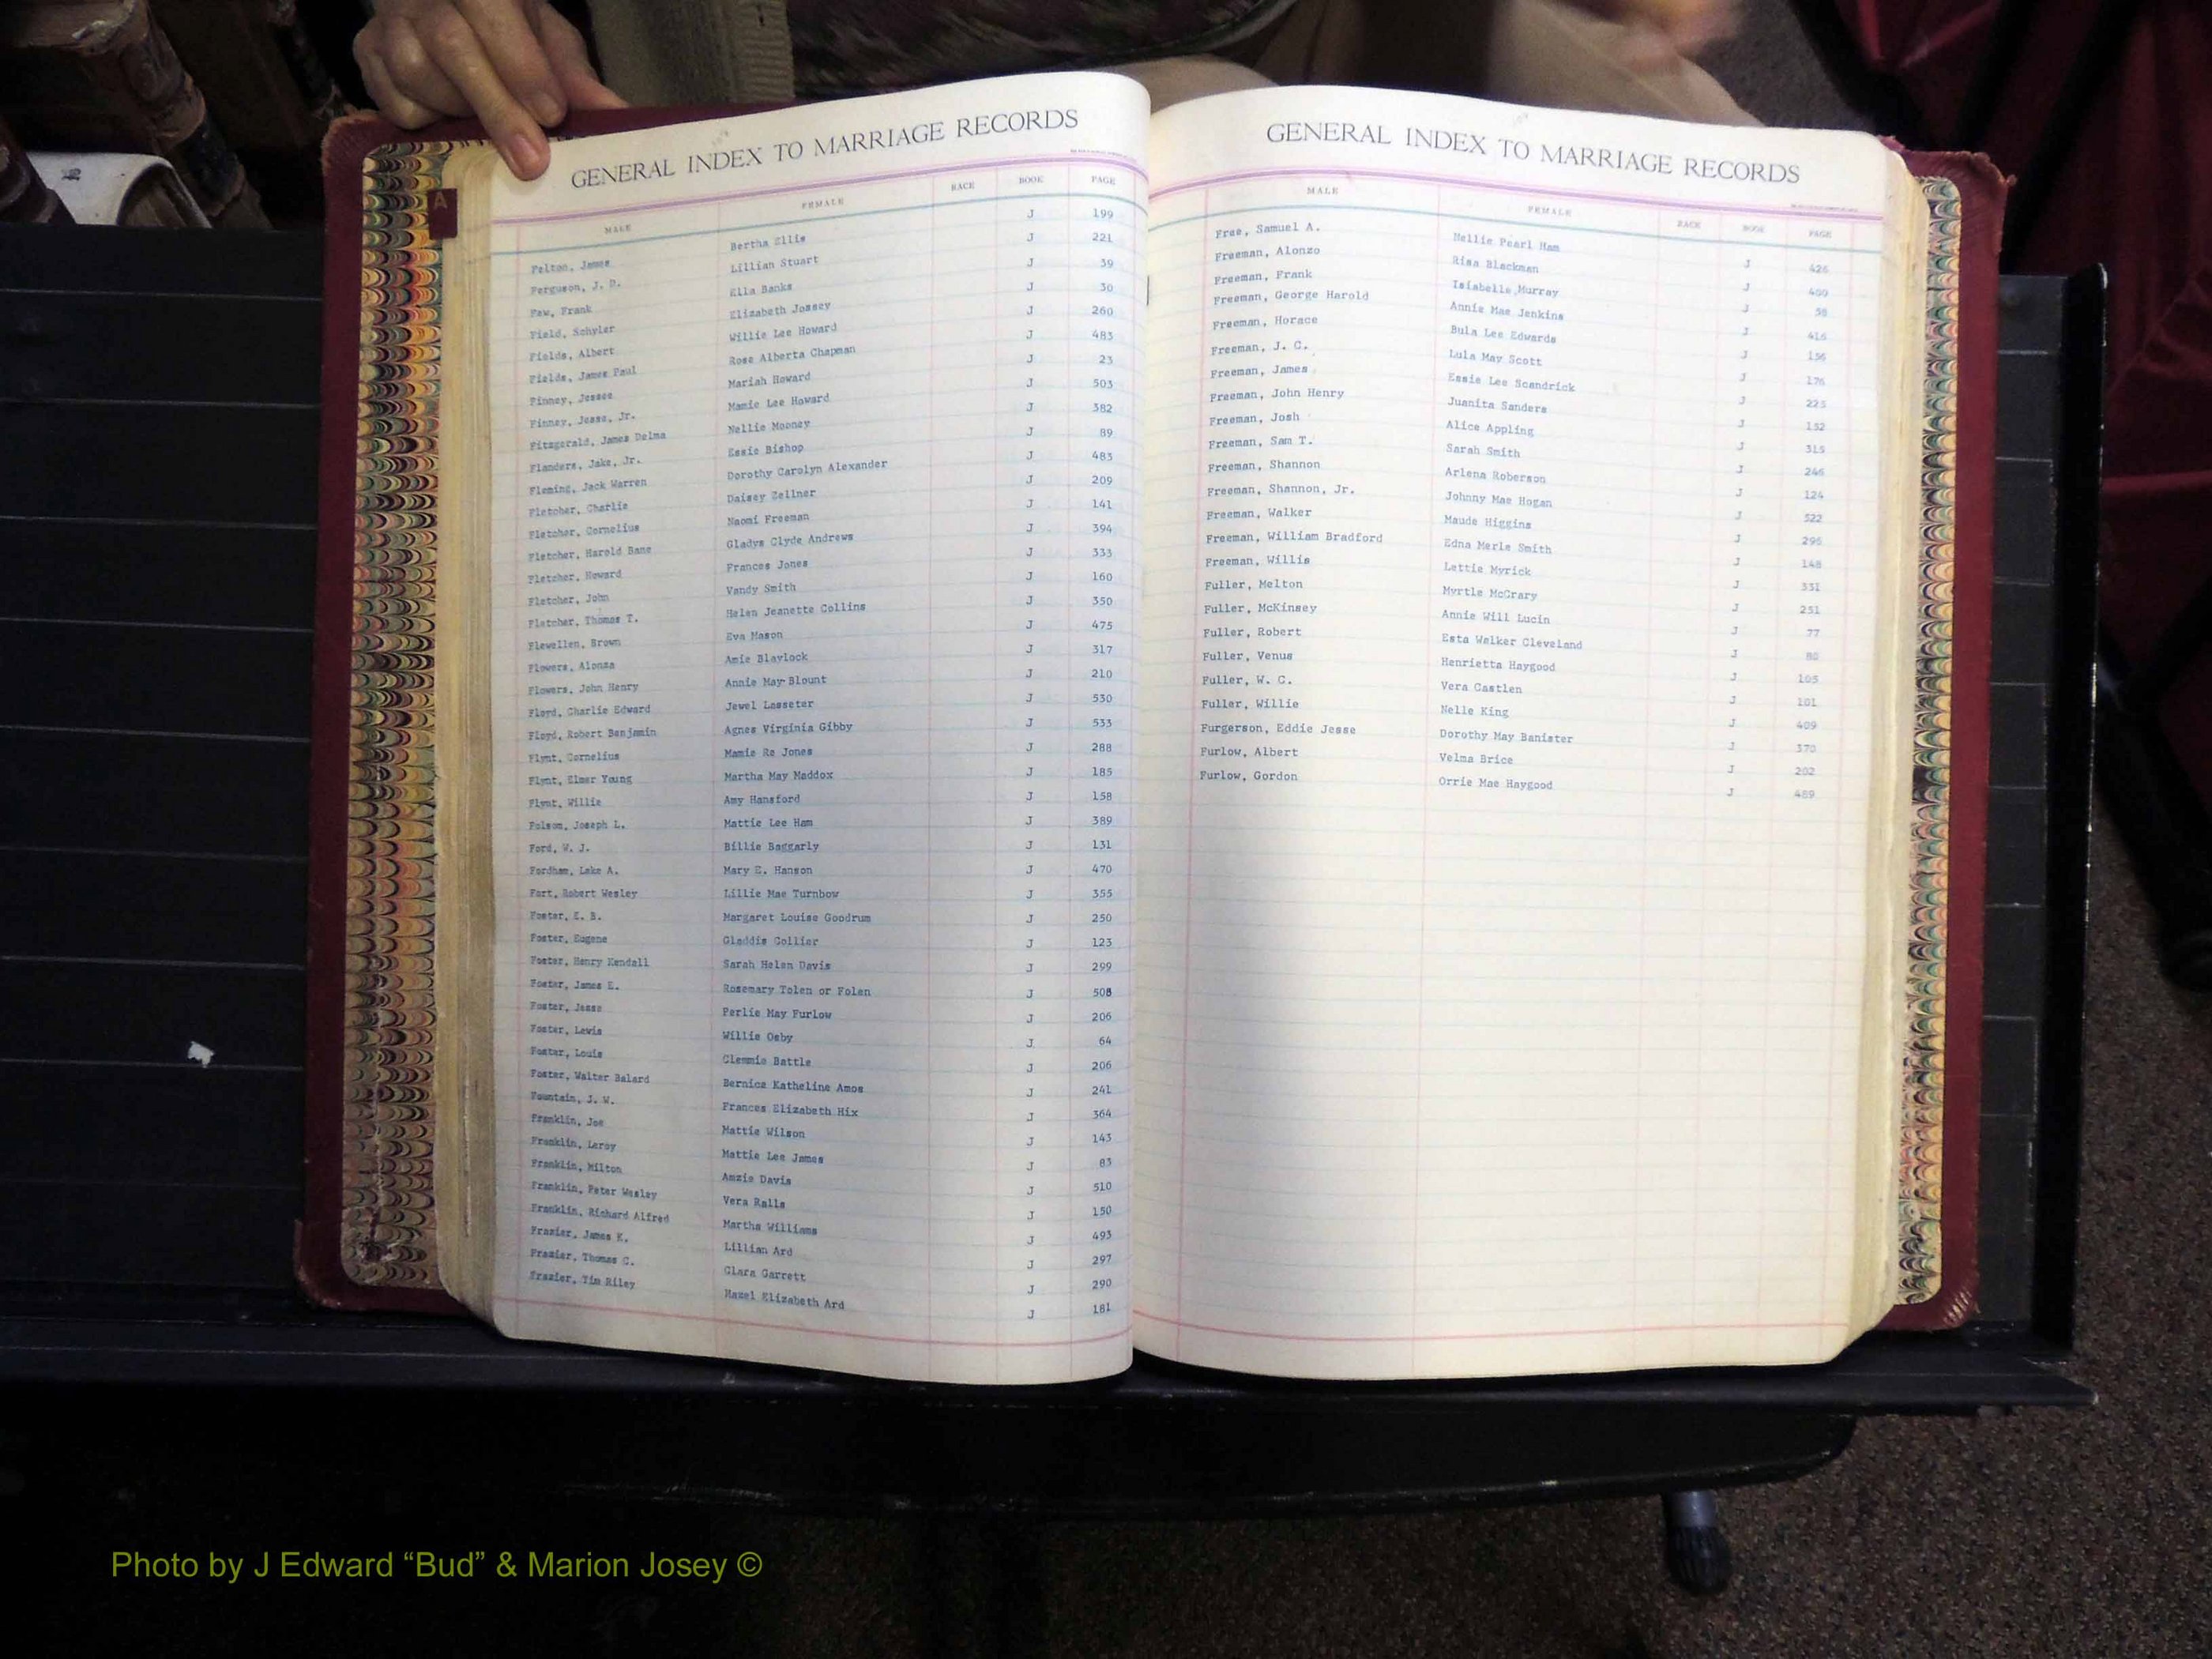 GENERAL INDEX TO MARRIAGE RECORDS
MALE FEMALE RACE BOOK PAGE
Felton, James Bertha Ellis J 199
Ferguson, J. D. Lillian Stuart J 221
Few, Frank Ella Banks J 39
Field, Schyler Elizabeth Jossey J 30
Fields, Albert Willie Lee Howard J 260
Fields, James Paul Rose Alberta Chapman J 483
Finney, Jessee Mariah Howard J 23
Finney, Jesse, Jr. Mamie Lee Howard J 503
Fitzgerald, James Delma Nellie Mooney J 382
Flanders, Jake, Jr. Essie Bishop J 89
Fleming, Jack Warren Dorothy Carolyn Alexander J 483
Fletcher, Charlie Daisey Zellner J 209
Fletcher, Cornelius Naomi Freeman J 141
Fletcher, Harold Bane Gladys Clyde Andrews J 394
Fletcher, Howard Frances Jones J 333
Fletcher, John Vandy Smith J 160
Fletcher, Thomas T. Helen Jeanette Collins J 350
Flewellen, Brown Eva Mason J 475
Flowers, Alonza Amie Blaylock J 317
Flowers, John Henry Annie May Blount J 210
Floyd, Charlie Edward Jewel Lasseter J 530
Floyd, Robert Benjamin Agnes Virginia Gibby J 533
Flynt, Cornelius Mamie Re Jones J 288
Flynt, Elmer Young Martha May Maddox J 185
Flynt, Willie Amy Hansford J 158
Folsom, Joseph L. Mattie Lee Ham J 389
Ford, W. J. Billie Baggarly J 131
Fordham, Lake A. Mary E. Hanson J 470
Fort, Robert Wesley Lillie Mae Turnbow J 355
Foster, E. B. Margaret Louise Goodrum J 250
Foster, Eugene Gladdis Collier J 123
Foster, Henry Kendall Sarah Helen Davis J 299
Foster, James E. Rosemary Tolen or Folen J 508
Foster, Jesse Perlie May Furlow J 206
Foster, Lewis Willie Osby J 64
Foster, Louis Clemmie Battle J 206
Foster, Walter Balard Bernice Katheline Amos J 241
Fountain, J. W. Frances Elizabeth Hix J 364
Franklin, Joe Mattie Wilson J 143
Franklin, Leroy Mattie Lee James J 83
Franklin, Milton Amzie Davis J 510
Franklin, Peter Wesley Vera Ralls J 150
Franklin, Richard Alfred Martha Williams J 493
Frazier, James K. Lillian Ard J 297
Frazier, Thomas C. Clara Garrett J 290
Frazier, Tim Riley Hazel Elizabeth Ard J 181
GENERAL INDEX TO MARRIAGE RECORDS
MALE FEMALE RACE BOOK PAGE
Free, Samuel A. Nellie Pearl Ham J 426
Freeman, Alonzo Risa Blackman J 400
Freeman, Frank Isiabelle Murray J 58
Freeman, George Harold Annie Mae Jenkins J 416
Freeman, Horace Bula Lee Edwards J 136
Freeman, J. C. Lula May Scott J 176
Freeman, James Essie Lee Scandrick J 225
Freeman, John Henry Juanita Sanders J 152
Freeman, Josh Alice Appling J 315
Freeman, Sam T. Sarah Smith J 246
Freeman, Shannon Arlena Roberson J 124
Freeman, Shannon, Jr. Johnny Mae Hogan J 522
Freeman, Walker Maude Higgins J 296
Freeman, William Bradford Edna Merle Smith J 148
Freeman, Willis Lettie Myrick J 331
Fuller, Melton Myrtle McCrary J 251
Fuller, McKinsey Annie Will Lucin J 77
Fuller, Robert Esta Walker Cleveland J 80
Fuller, Venus Henrietta Haygood J 105
Fuller, W. C. Vera Castlen J 101
Fuller, Willie Nelle King J 409
Furgerson, Eddie Jesse Dorothy May Banister J 370
Furlow, Albert Velma Brice J 202
Furlow, Gordon Orrie Mae Haygood J 489
A
Photo by J Edward “Bud” & Marion Josey ©